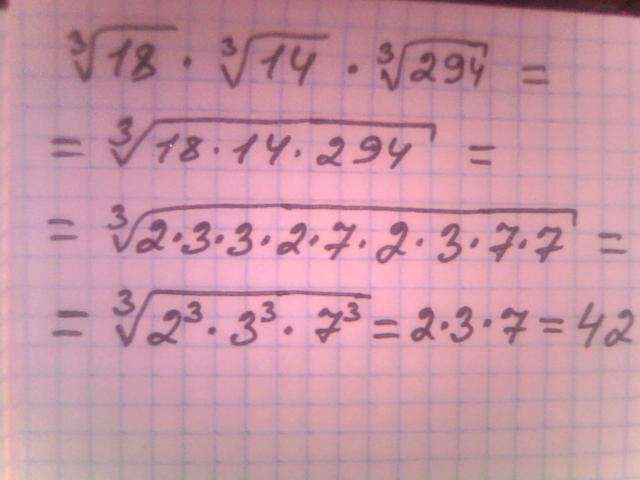 ∛18 · ∛14 · ∛294 =
= ∛(18·14·294) =
= ∛(2·3·3·2·7·2·3·7·7) =
= ∛(2³·3³·7³) = 2·3·7 = 42